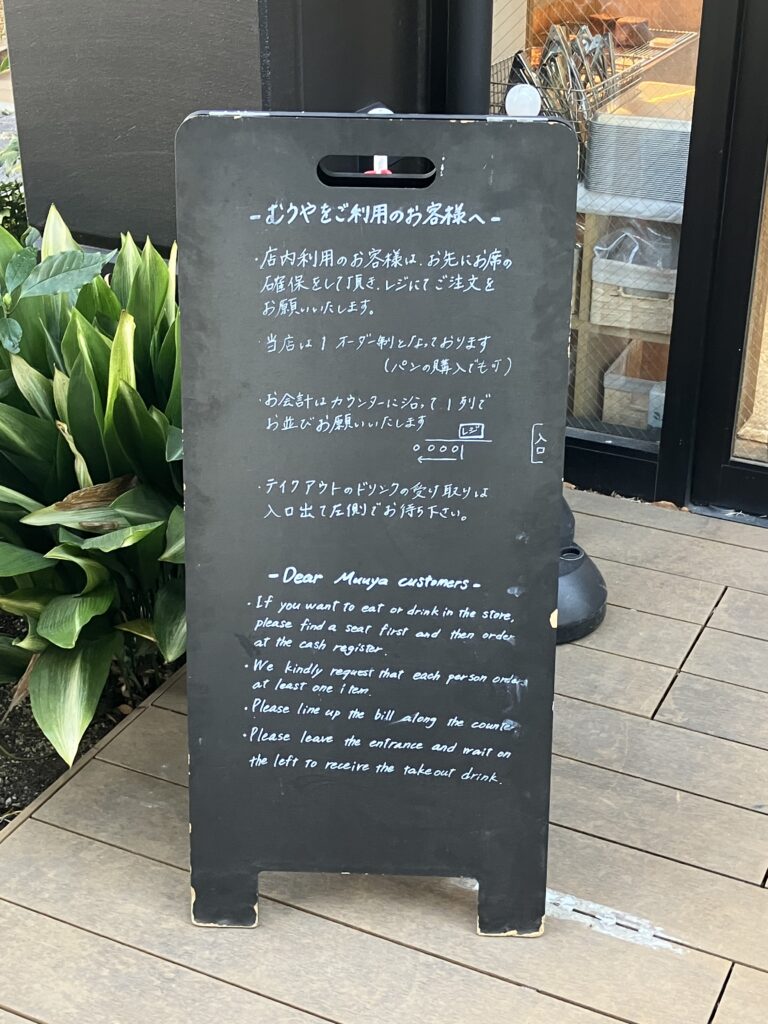 -むうやをご利用のお客様へ-
・店内利用のお客様は、お先にお席の
確保をして頂き、レジにてご注文を
お願いいたします。
・当店は1オーダー制となっております
(パンの購入でも可)
・お会計はカウンターに沿って1列で
お並びお願いいたします
レジ
入口
・テイクアウトのドリンクの受け取りは
入口出て左側でお待ち下さい。
-Dear Muuya customers-
・If you want to eat or drink in the store,
please find a seat first and then order
at the cash register.
・We kindly request that each person orders
at least one item.
・Please line up the bill along the counte
・Please leave the entrance and wait on
the left to receive the takeout drink.